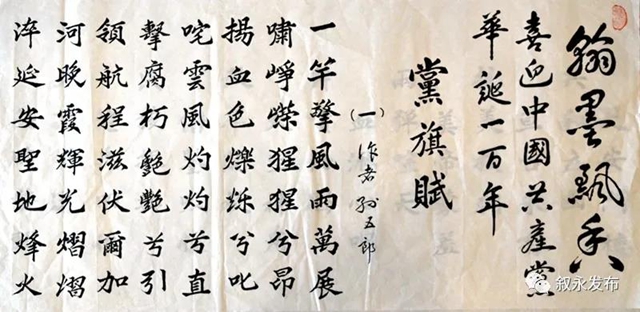 翰墨飄香
喜迎中國共產黨
華誕一百年
黨旗賦
(一)作者 五郎
一竿擎風雨萬展
嘯崢嶸猩猩兮昂
揚血色爍烁兮叱
咤雲風灼灼兮直
擊腐朽艷艷兮引
領航程滋伏爾加
河晚霞輝光熠熠
淬延安聖地烽火
叙永发布